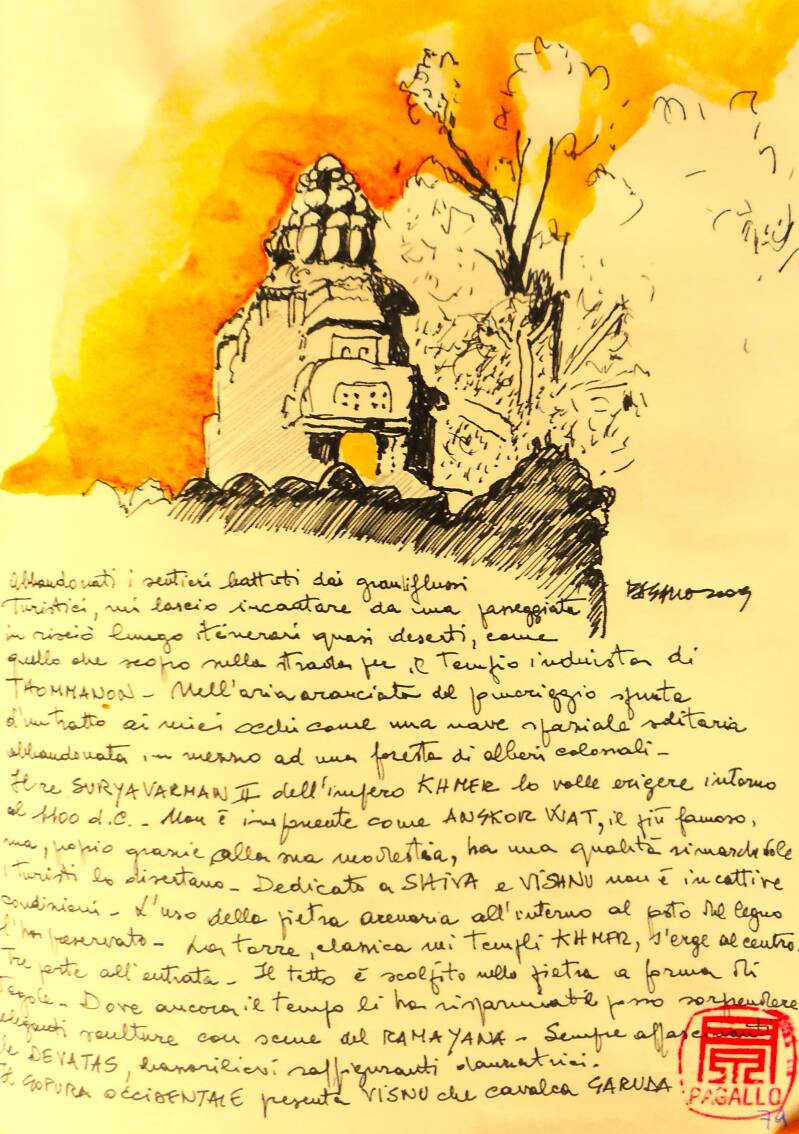 Abbandonati i sentieri battuti dai grandi flussi
turistici, mi lascio incantare da una passeggiata
in risciò lungo itinerari quasi deserti, come
quello che scopro sulla strada per il Tempio induista di
THOMMANON - Nell'aria aranciata del pomeriggio spunta
d'un tratto ai miei occhi come una nave spaziale solitaria
abbandonata in mezzo ad una foresta di alberi colossali -
Il re SURYAVARMAN II dell'impero KHMER lo volle erigere intorno
al 1100 d.C. - Non è imponente come ANGKOR WAT, il più famoso,
ma, proprio grazie alla sua modestia, ha una qualità rimarchevole
i turisti lo disertano - Dedicato a SHIVA e VISHNU non è in cattive
condizioni - L'uso della pietra arenaria all'interno al posto del legno
l'ha preservato - La torre, classica nei templi KHMER, s'erge al centro.
Tre porte all'entrata - Il tetto è scolpito nella pietra a forma di
Tegole - Dove ancora il tempo li ha risparmiati posso sorprendere
eleganti sculture con scene del RAMAYANA - Sempre affascinanti
le DEVATAS, bassorilievi raffiguranti danzatrici.
Il GOPURA OCCIDENTALE presenta VISNU che cavalca GARUDA
2009
PAGALLO
79